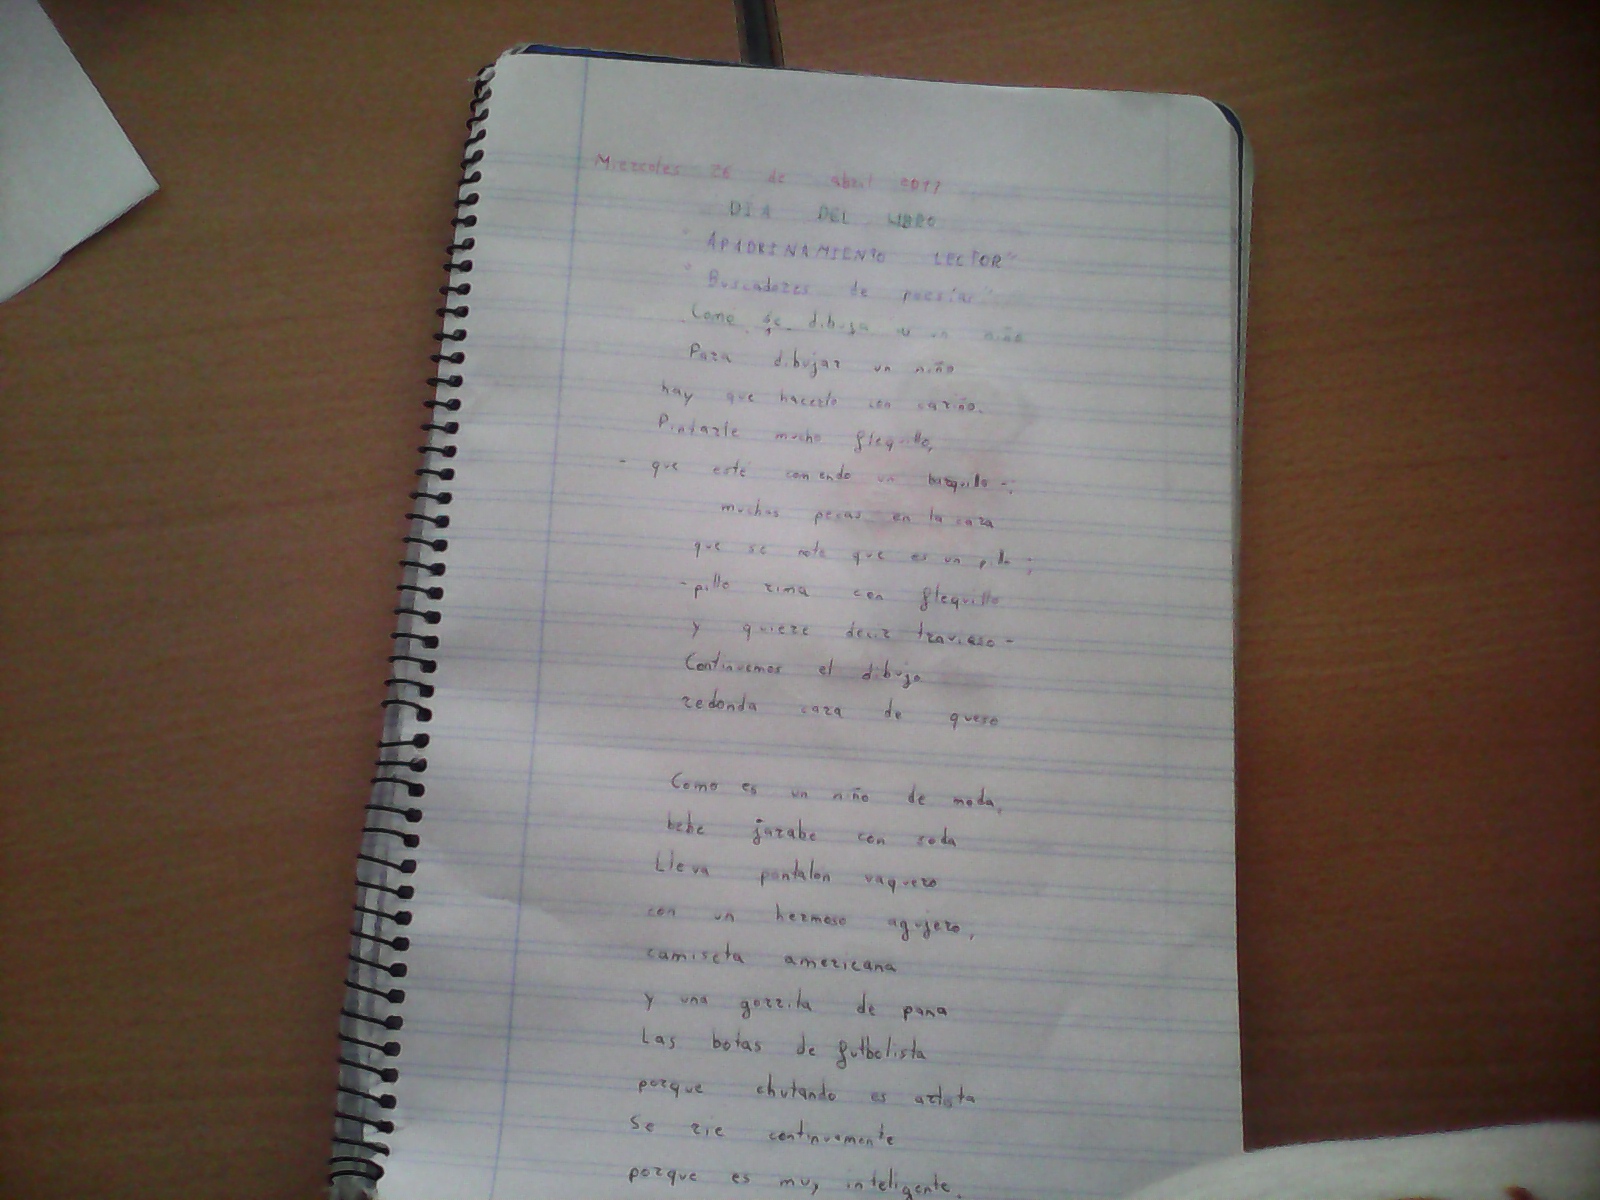 Miercoles 26 de abril 2017
DIA DEL LIBRO
"APADRINAMIENTO LECTOR"
"Buscadores de poesías"
Como se dibuja un niño
Para dibujar un niño
hay que hacerlo con cariño.
Pintarle mucho flequillo,
- que esté comiendo un barquillo -;
muchas pecas en la cara
que se note que es un pillo;
- pillo rima con flequillo
y quiere decir travieso -
Continuemos el dibujo
redonda cara de queso
Como es un niño de moda,
bebe jarabe con soda
Lleva pantalon vaquero
con un hermoso agujero,
camiseta americana
y una gorrita de pana
Las botas de futbolista
porque chutando es artista
Se rie continuamente
porque es muy inteligente.